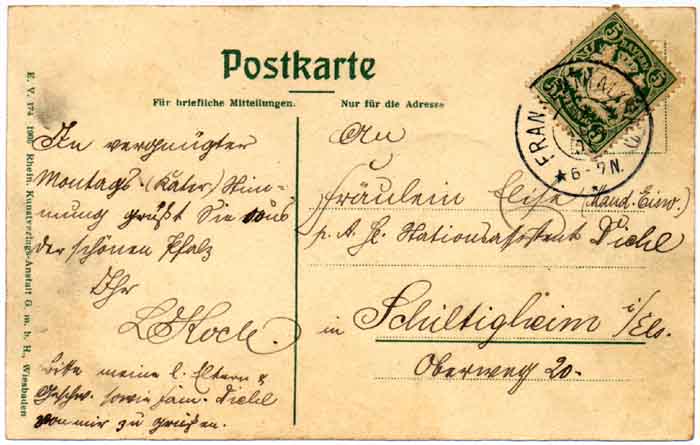 Postkarte
Für briefliche Mitteilungen.
Nur für die Adresse
In vergnügter
Montags-(Kater) Stim-
mung grüßt Sie aus
der schönen Pfalz
Ihr
L Koch.
Bitte meine l. Eltern &
Geschw. sowie fam. Diehl
von mir zu grüßen.
An
Fräulein Elise
p. A. H. Stationsassistent Diehl
in Schiltigheim i/Els.
Oberweg 20.
E. V. 174 1905 Rhein. Kunstverlags-Anstalt G. m. b. H., Wiesbaden
5 BAYERN 5
FRAN
★6-7N.